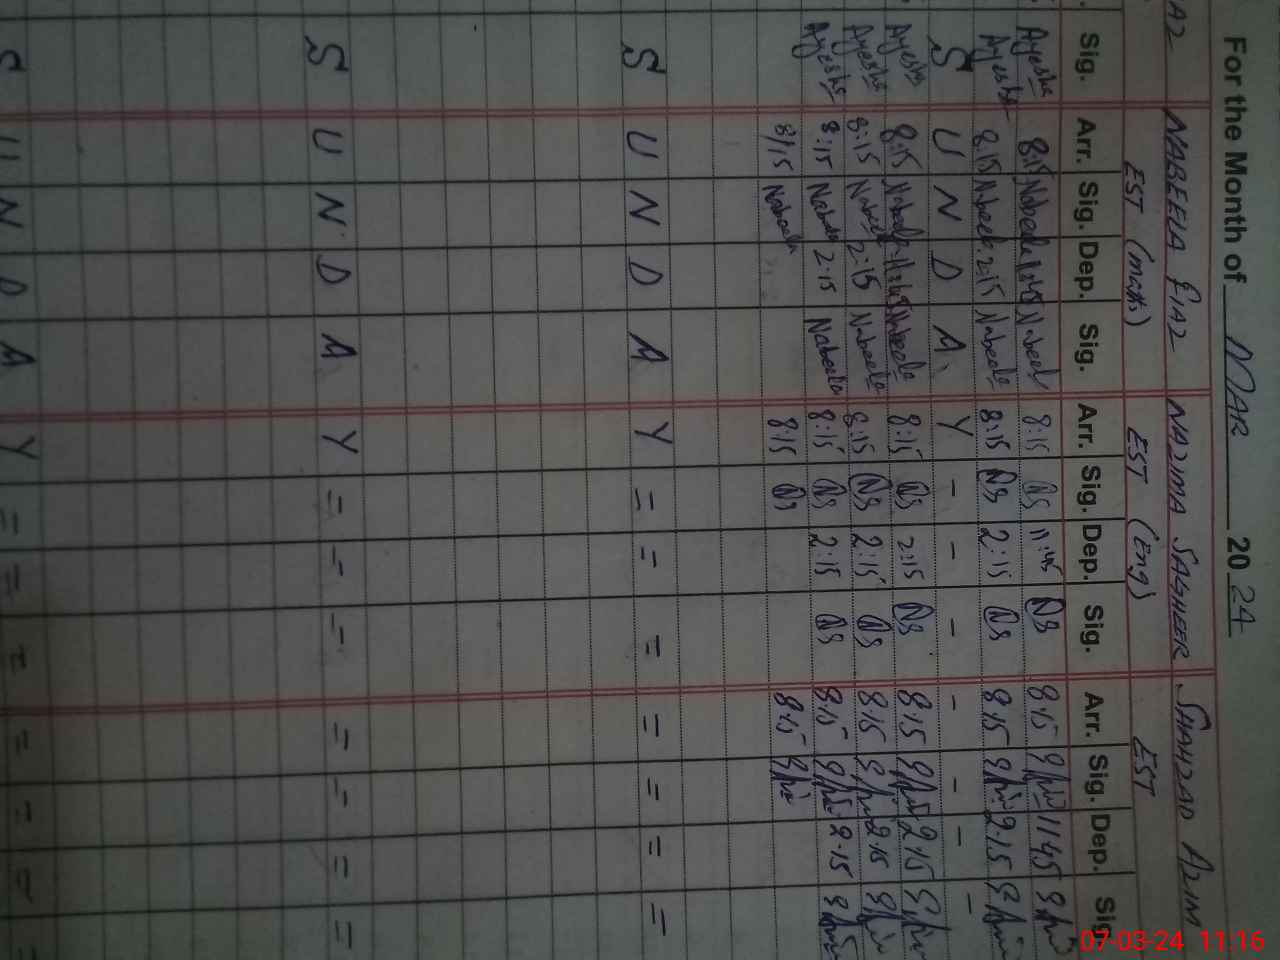 For the Month of MAR 2024
AZ NABEELA RIAZ NAZMA SAGHEER SHAHZAD AZIM
EST (math) EST (Eng) EST
Sig. Arr. Sig. Dep. Sig. Arr. Sig. Dep. Sig. Arr. Sig. Dep. Sig
Ayesha 8:15 Nabeela 11:45 Nabeel 8:15 NS 11:45 NS 8:15 11:45
Ayesha 8:15 Nabeela 2:15 Nabeela 8:15 NS 2:15 NS 8:15 2:15
S U N D A Y - - - - - - -
Ayesha 8:15 Nabeela Nabeela 8:15 NS 2:15 NS 8:15 2:15
Ayesha 8:15 Nabeela 2:15 Nabeela 8:15 NS 2:15 NS 8:15 2:15
Ayesha 8:15 Nabeela 2:15 Nabeela 8:15 NS 2:15 NS 8:15 2:15
8/15 Nabeela 8:15 NS 8:15
S U N D A Y = = = = = = =
S U N D A Y = = = = = = =
S U N D A Y = = = = = = =
07-03-24 11:16